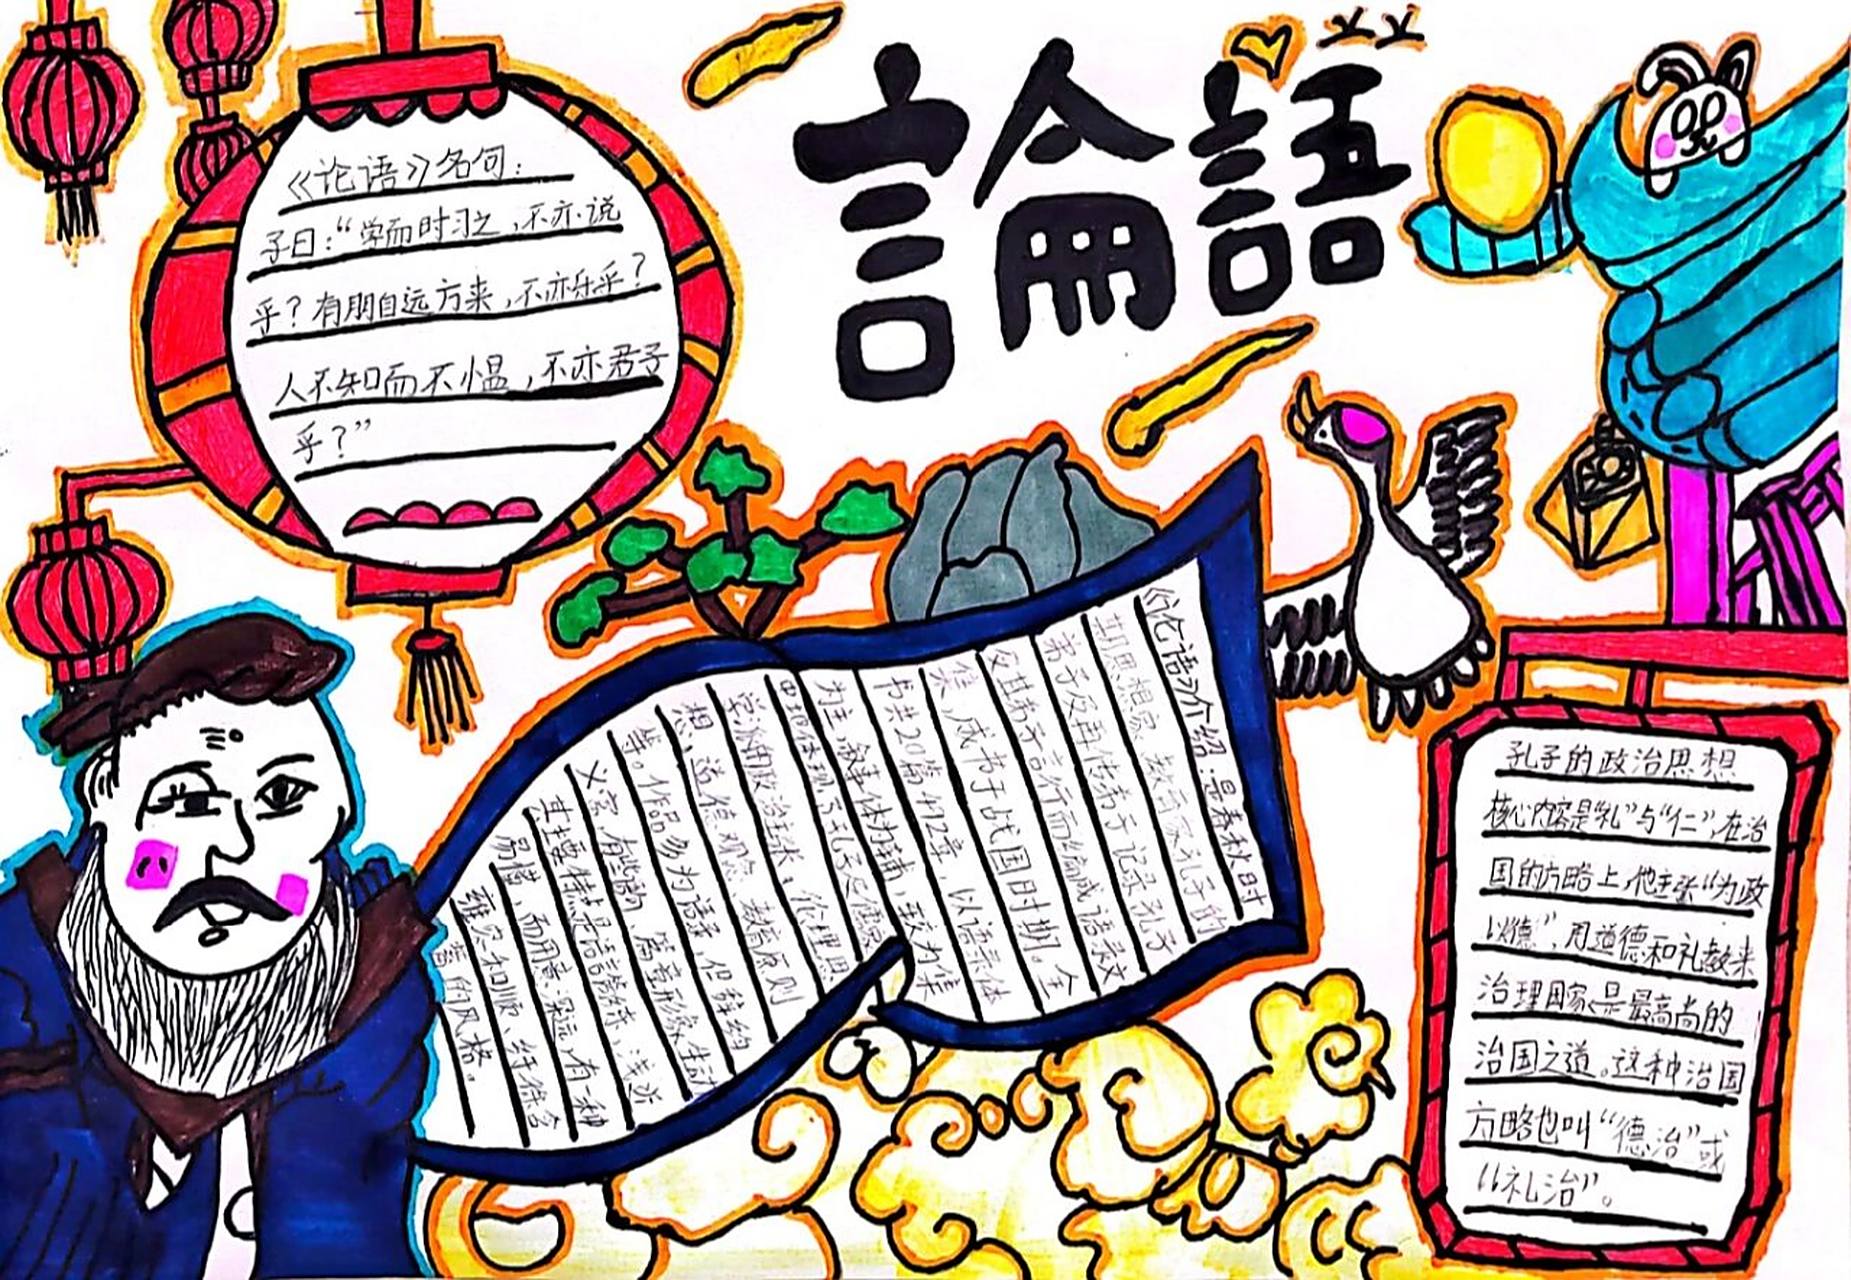 論語
《论语》名句:
子曰:“学而时习之,不亦说
乎?有朋自远方来,不亦乐乎?
人不知而不愠,不亦君子
乎?”
《论语》介绍:是春秋时
期思想家、教育家孔子的
弟子及再传弟子记录孔子
及其弟子言行而编成语录文
集,成书于战国时期。全
书共20篇492章,以语录体
为主,叙事体为辅,较为集
中地体现了孔子及儒家
学派的政治主张、伦理思
想、道德观念、教育原则
等。作品多为语录,但辞约
义富,有些语句、篇章形象生动
其主要特点是语言简练,浅近
易懂,而用意深远,有一种
雍容和顺、纡徐含
蓄的风格。
孔子的政治思想
核心内容是“礼”与“仁”,在治
国的方略上,他主张“为政
以德”,用道德和礼教来
治理国家是最高尚的
治国之道。这种治国
方略也叫“德治”或
“礼治”。